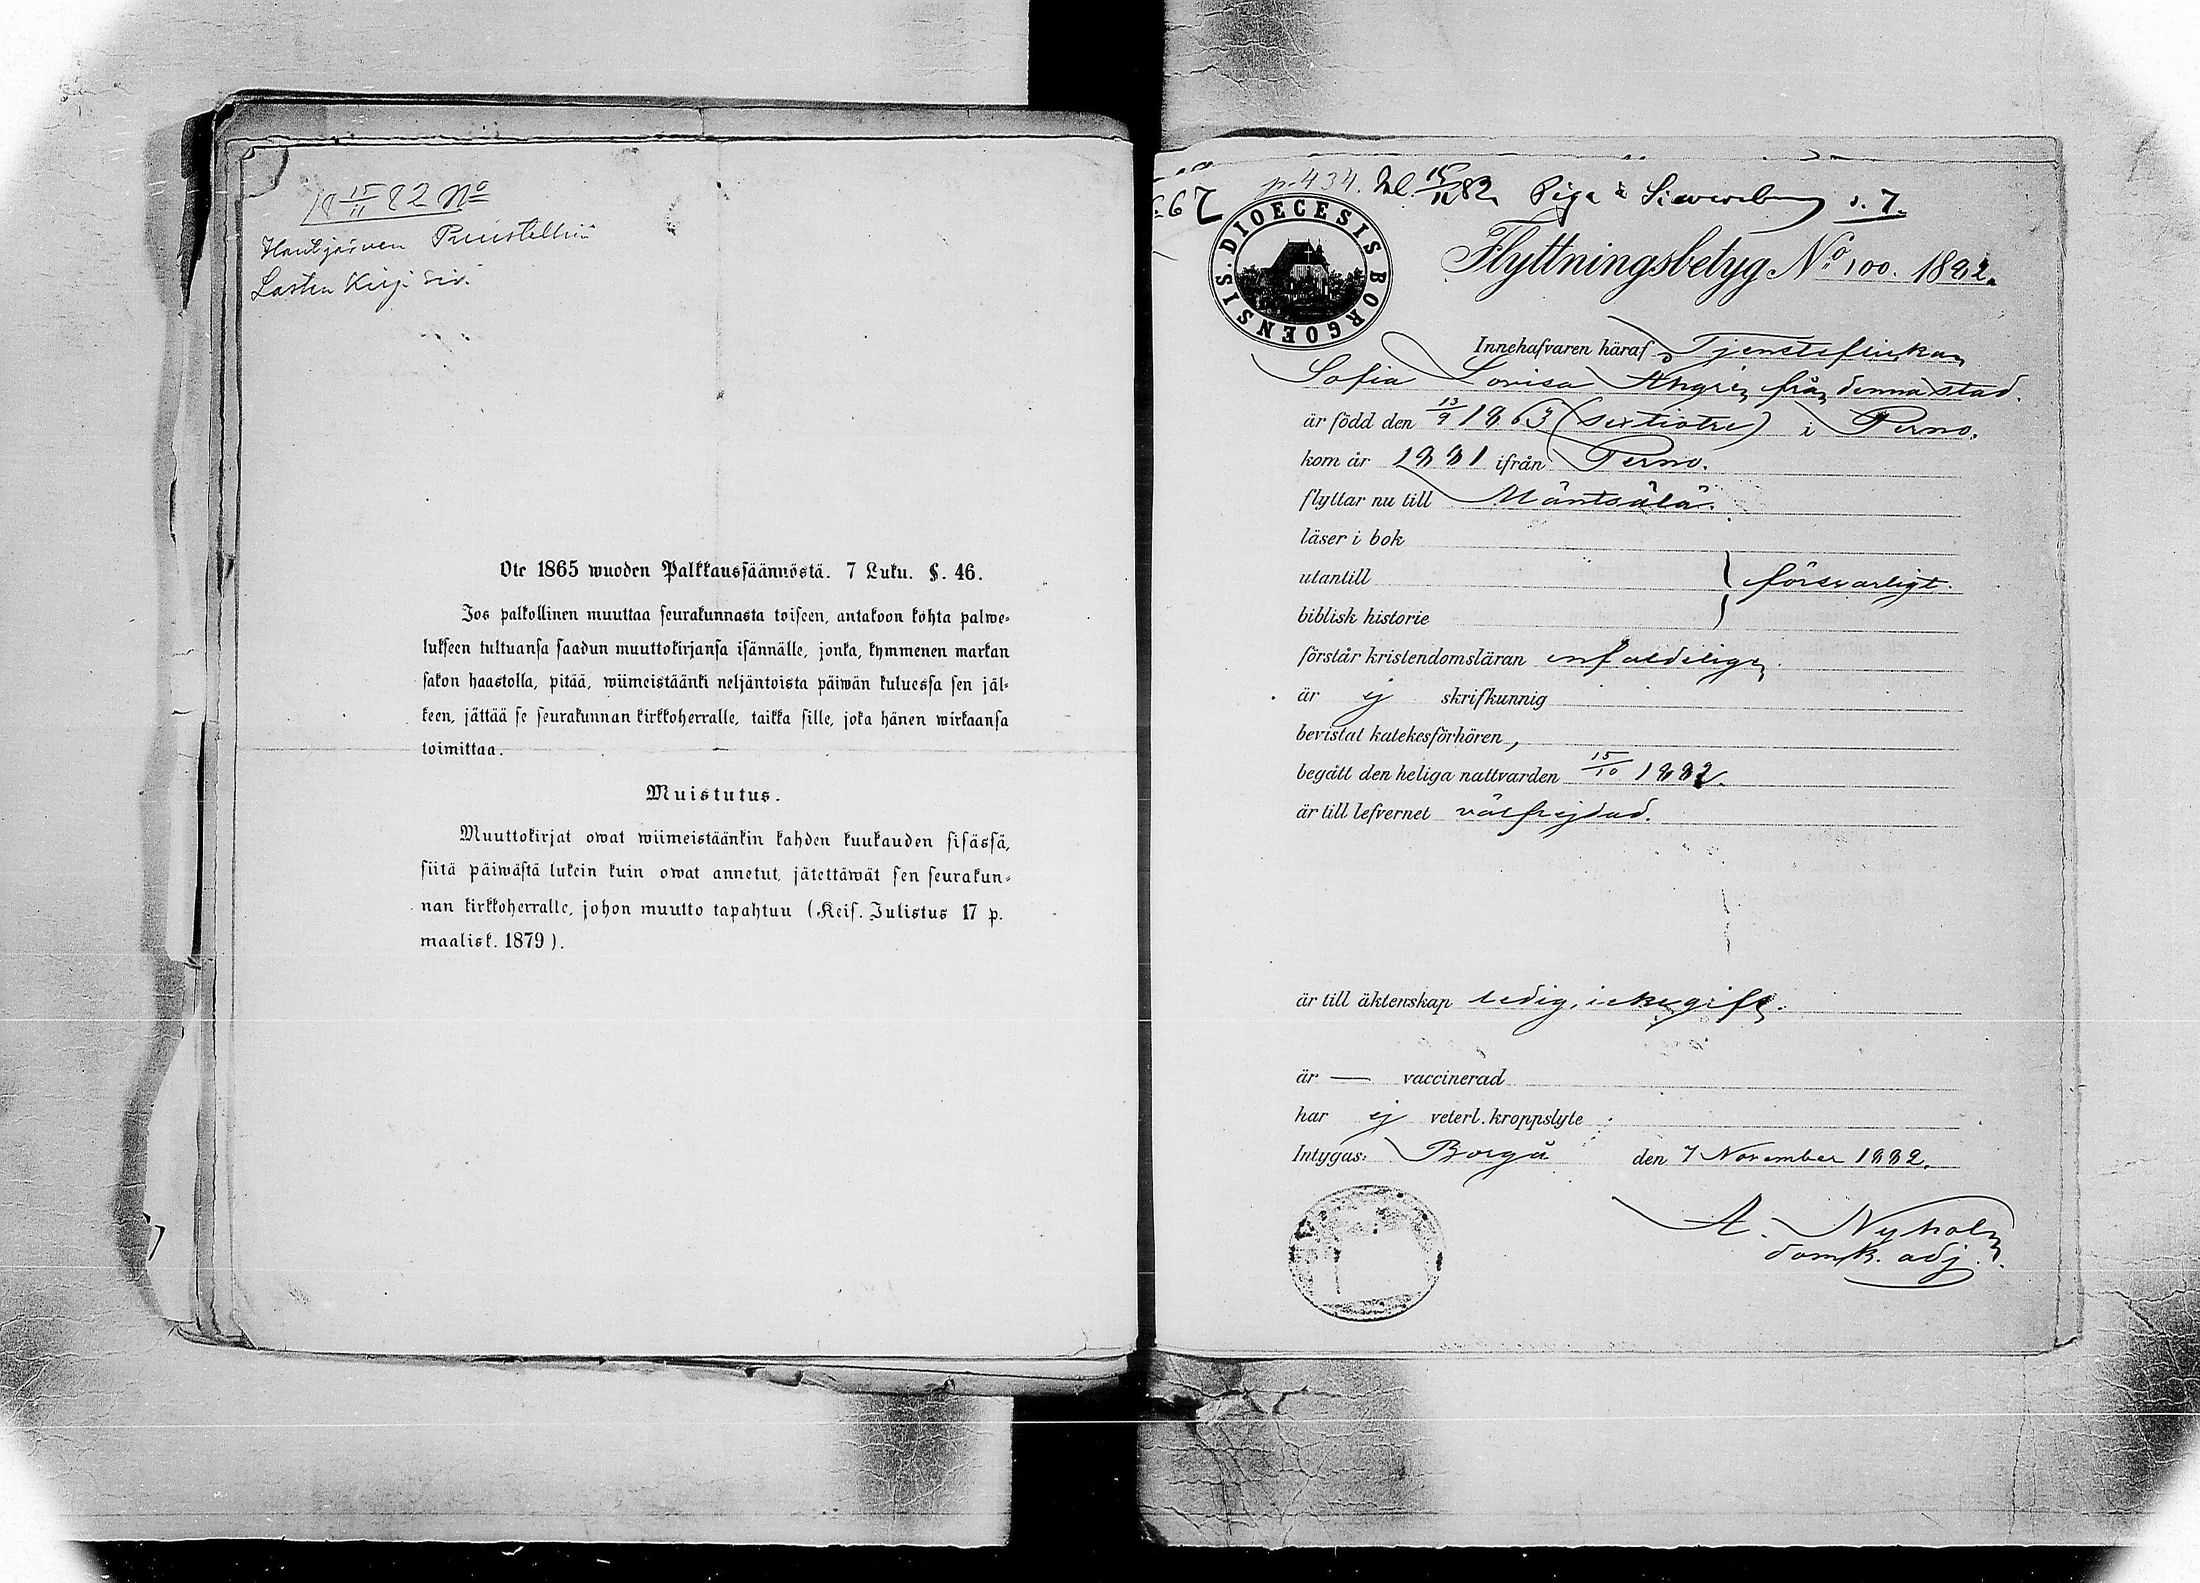 18 15/11 82 No
Lasten Kirj. siv.
Ote 1865 wuoden Palkkaussäännöstä. 7 Luku. §. 46.
Jos palkollinen muuttaa seurakunnasta toiseen, antakoon kohta palwe-
lukseen tultuansa saadun muuttokirjansa isännälle, jonka, kymmenen markan
sakon haastolla, pitää, wiimeistäänki neljäntoista päiwän kuluessa sen jäl-
keen, jättää se seurakunnan kirkkoherralle, taikka sille, joka hänen wirkaansa
toimittaa.
Muistutus.
Muuttokirjat owat wiimeistäänkin kahden kuukauden sisässä,
siitä päiwästä lukein kuin owat annetut, jätettäwät sen seurakun-
nan kirkkoherralle, johon muutto tapahtuu (Keis. Julistus 17 p.
maalisk. 1879).
67 p. 434. 15/11 82. Piga s. 7.
DIOECESIS BORGOENSIS.
Flyttningsbetyg No 100. 1882.
Innehafvaren häraf, Tjensteflickan
Sofia Lovisa från denna stad.
är född den 13/9 1863 (sextiotre) i Perno.
kom år 1881 ifrån Perno.
flyttar nu till Mäntsälä.
läser i bok
utantill } försvarligt.
biblisk historie
förstår kristendomsläran enfaldeligen.
är ej skrifkunnig
bevistat katekesförhören,
begått den heliga nattvarden 15/10 1882.
är till lefvernet välfrejdad.
är till äktenskap ledig, icke gift.
är — vaccinerad
har ej veterl. kroppslyte
Intygas: Borgå den 7 November 1882.
A. Nyholm
domk. adj.